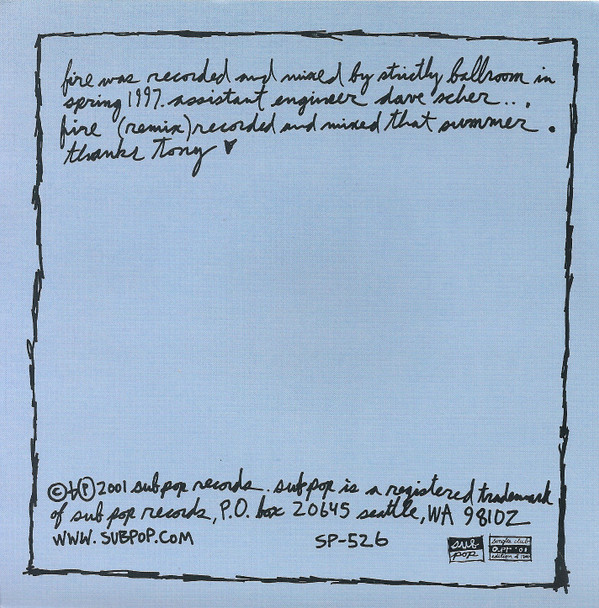 fire was recorded and mixed by strictly ballroom in
spring 1997. assistant engineer dave scher...
fire (remix) recorded and mixed that summer.
thanks tony ♥
© & ℗ 2001 sub pop records. sub pop is a registered trademark
of sub pop records, P.O. box 20645 seattle, WA 98102
WWW.SUBPOP.COM
SP-526
sub
pop
singles club
edition of